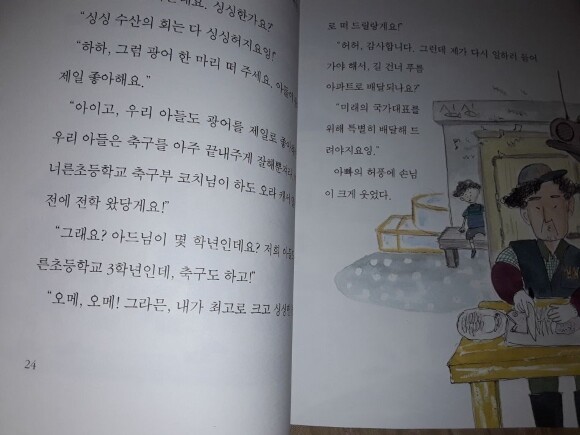 래요. 싱싱한가요?
"싱싱 수산의 회는 다 싱싱허지요잉!"
"하하, 그럼 광어 한 마리 떠 주세요. 아들이
제일 좋아해요."
"아이고, 우리 아들도 광어를 제일로
우리 아들은 축구를 아주 끝내주게 잘해뿐
너른초등학교 축구부 코치님이 하도 오라 캐서
전에 전학 왔당게요!"
"그래요? 아드님이 몇 학년인데요? 저희
른초등학교 3학년인데, 축구도 하고!"
"오메, 오메! 그라믄, 내가 최고로 크고
24
로 떠 드릴랑게요!"
"허허, 감사합니다. 그런데 제가 다시 일하러 들어
가야 해서, 길 건너 푸른
아파트로 배달되나요?"
"미래의 국가대표를
위해 특별히 배달해 드
려야지요잉."
아빠의 허풍에 손님
이 크게 웃었다.
싱싱